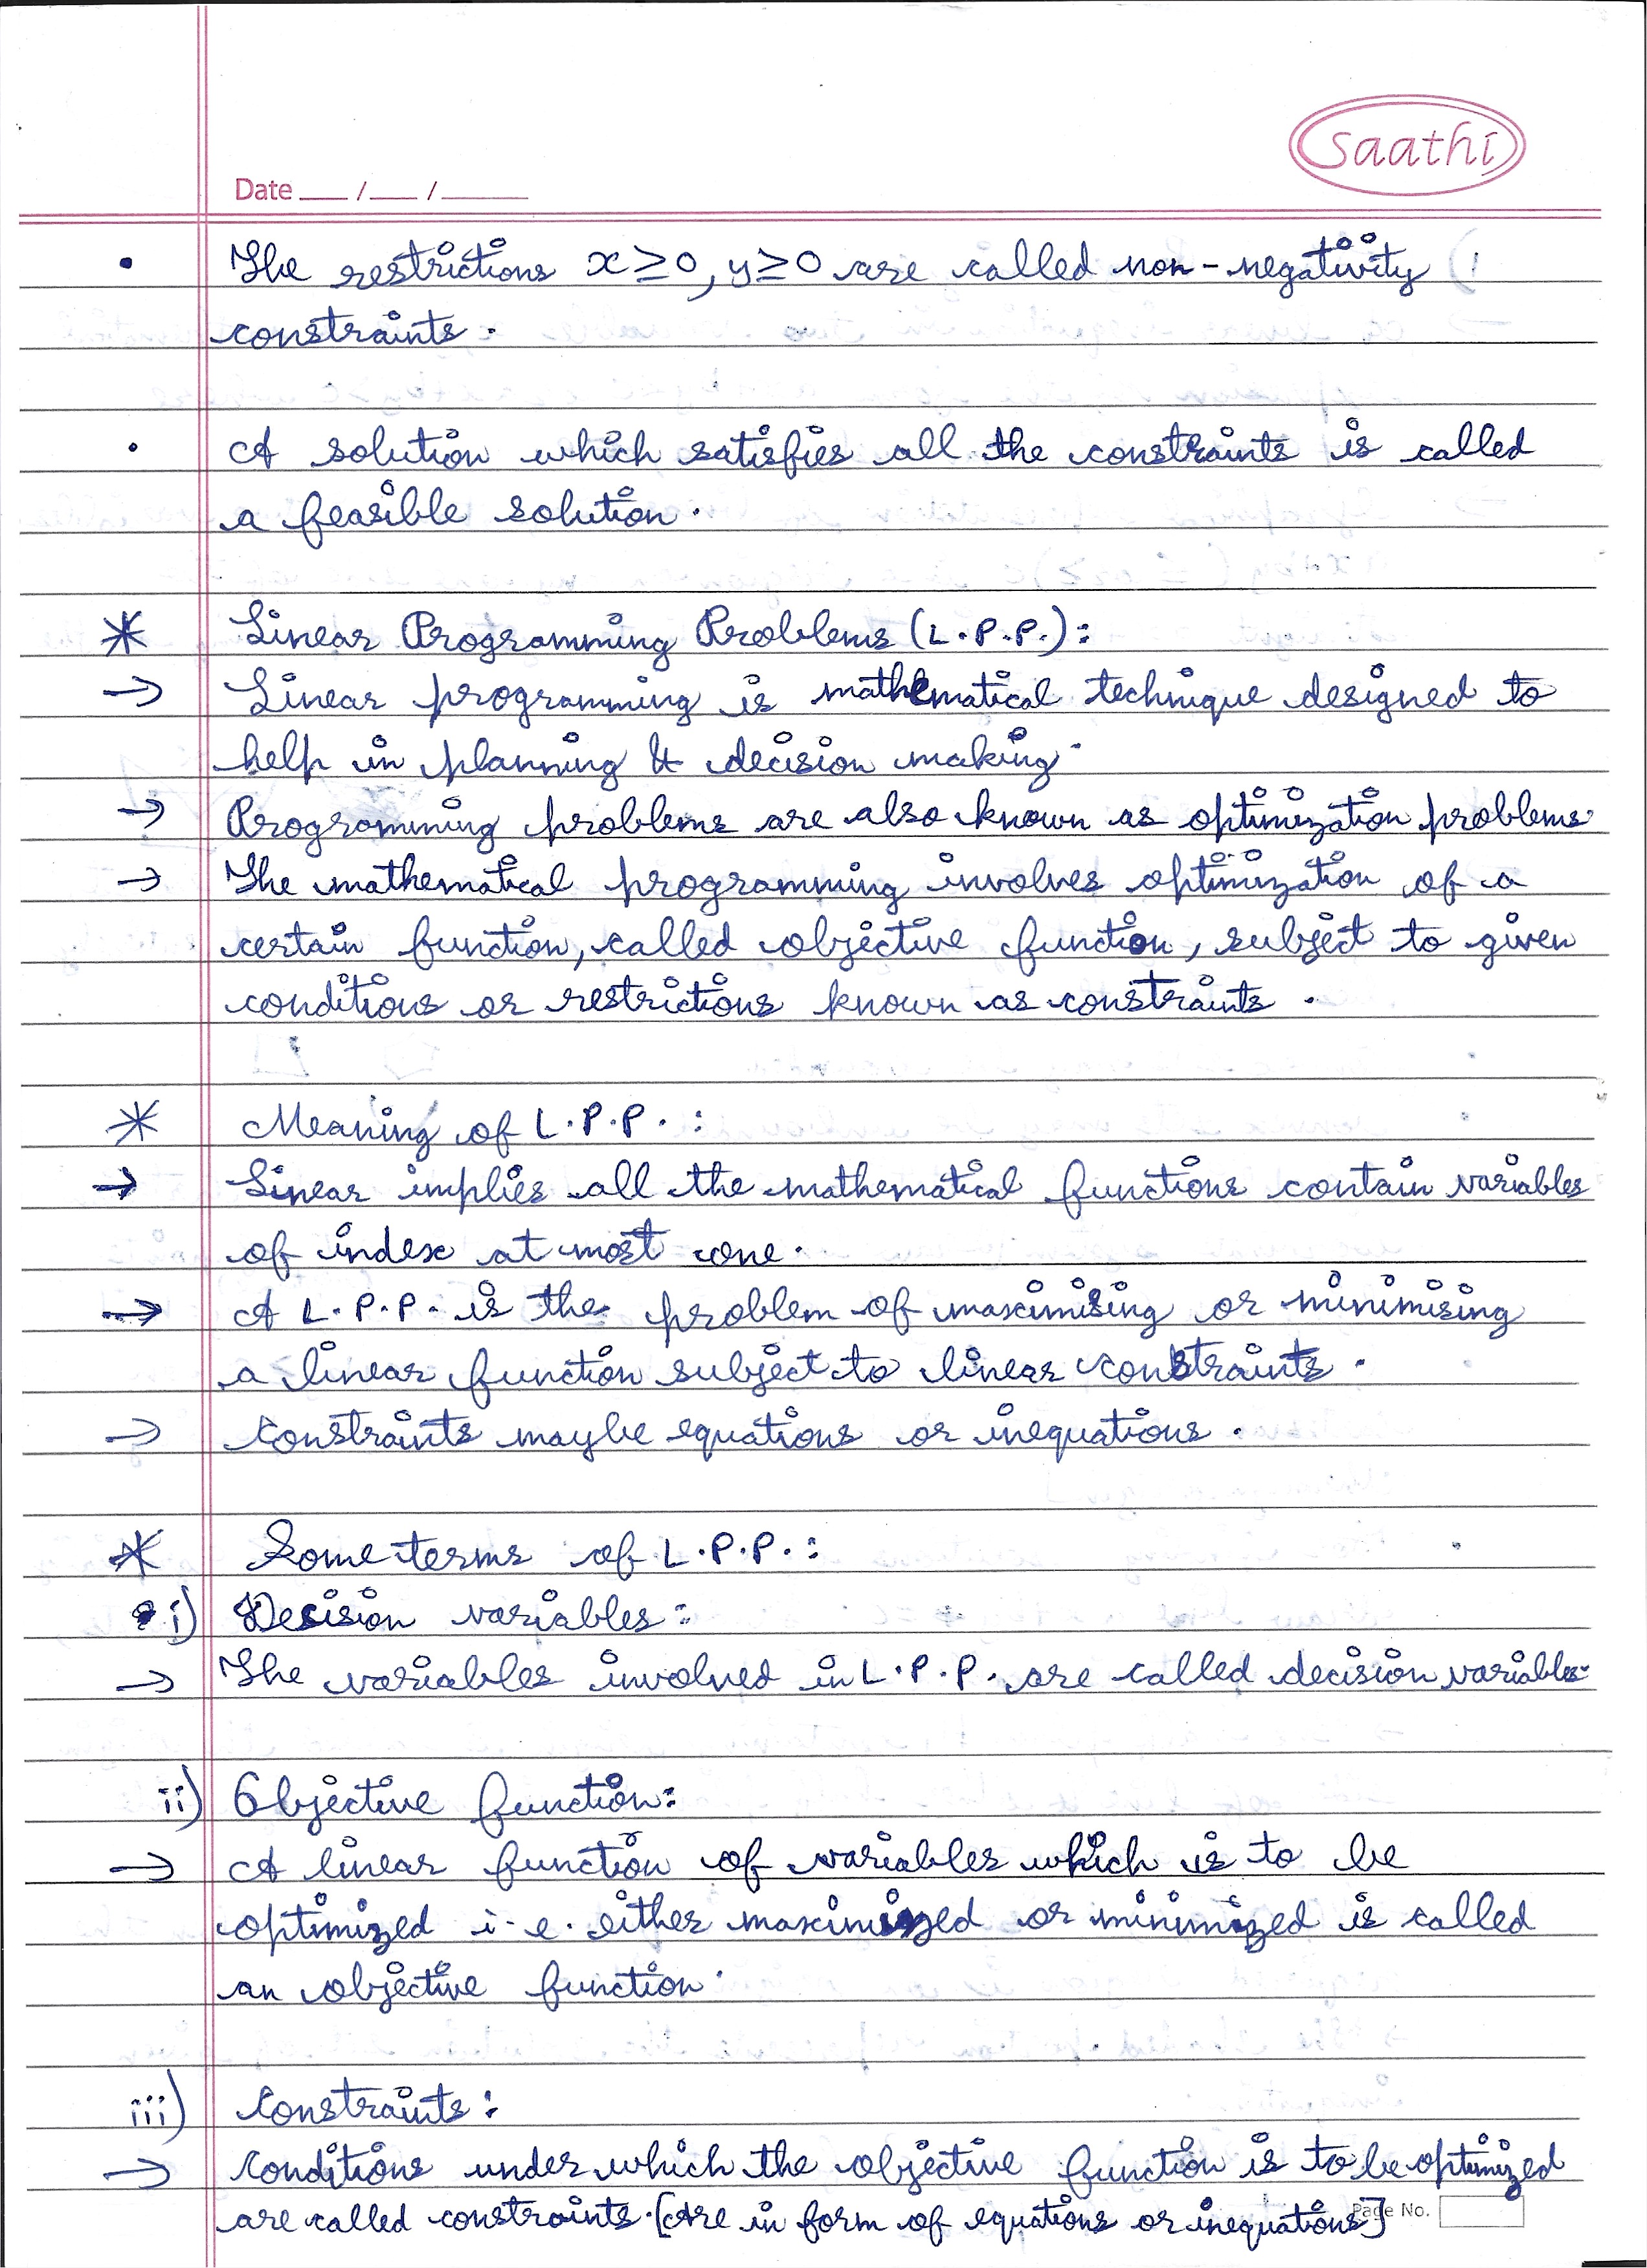 saathi
Date ___/___/_____
• The restrictions x≥0, y≥0 are called non-negativity
constraints.
• A solution which satisfies all the constraints is called
a feasible solution.
* Linear Programming Problems (L.P.P.):
→ Linear programming is mathematical technique designed to
help in planning & decision making.
→ Programming problems are also known as optimization problems.
→ The mathematical programming involves optimization of a
certain function, called objective function, subject to given
conditions or restrictions known as constraints.
* Meaning of L.P.P. :
→ Linear implies all the mathematical functions contain variables
of index at most one.
→ A L.P.P. is the problem of maximising or minimising
a linear function subject to linear constraints.
→ Constraints maybe equations or inequations.
* Some terms of L.P.P. :
i) Decision variables:
→ The variables involved in L.P.P. are called decision variables.
ii) Objective function:
→ A linear function of variables which is to be
optimized i.e. either maximized or minimized is called
an objective function.
iii) Constraints:
→ Conditions under which the objective function is to be optimized
are called constraints. [Are in form of equations or inequations]
Page No.